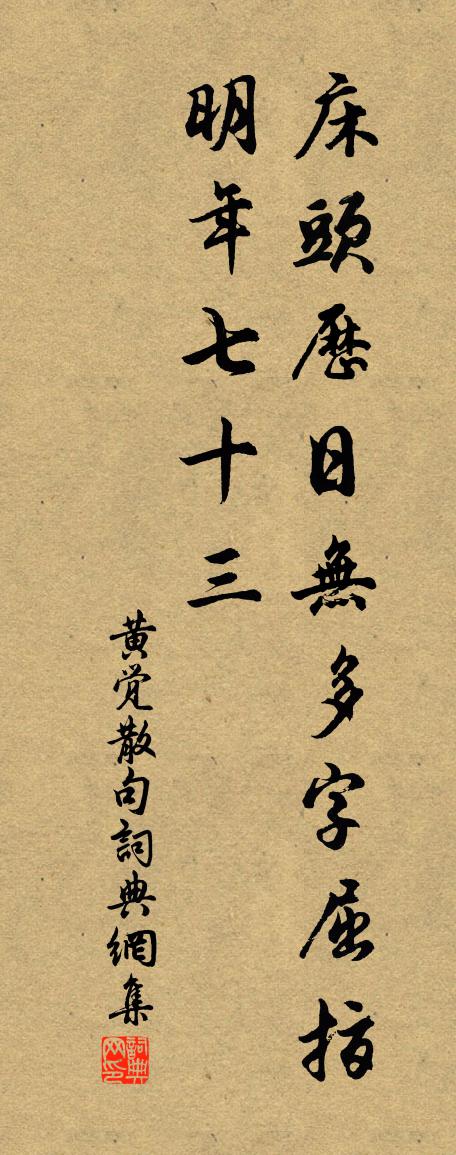 床頭歷日無多字屈指
明年七十三
黄觉散句詞典網集
詞典网印